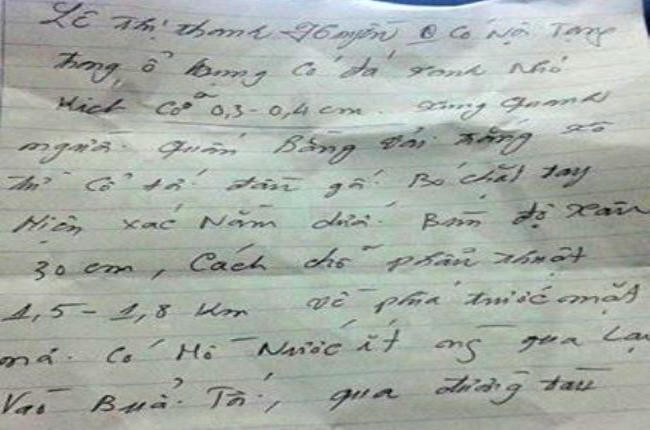 Lê Thị Thanh Huyền Có Nội Tạng
trong ổ bụng Có đá xanh nhỏ
Kích Cỡ 0,3 - 0,4 cm. xung quanh
người. quấn Bằng vải trắng xô
thì Cổ tử gố. Bó chặt tay
Hiện xác Nằm dưới Bùn độ
30 cm, Cách chỗ phẫu thuật
1,5 - 1,8 Km về phía trước mặt
má. Có Hồ Nước ít ng qua Lại
Vào Buổi. Tối, qua đường tàu